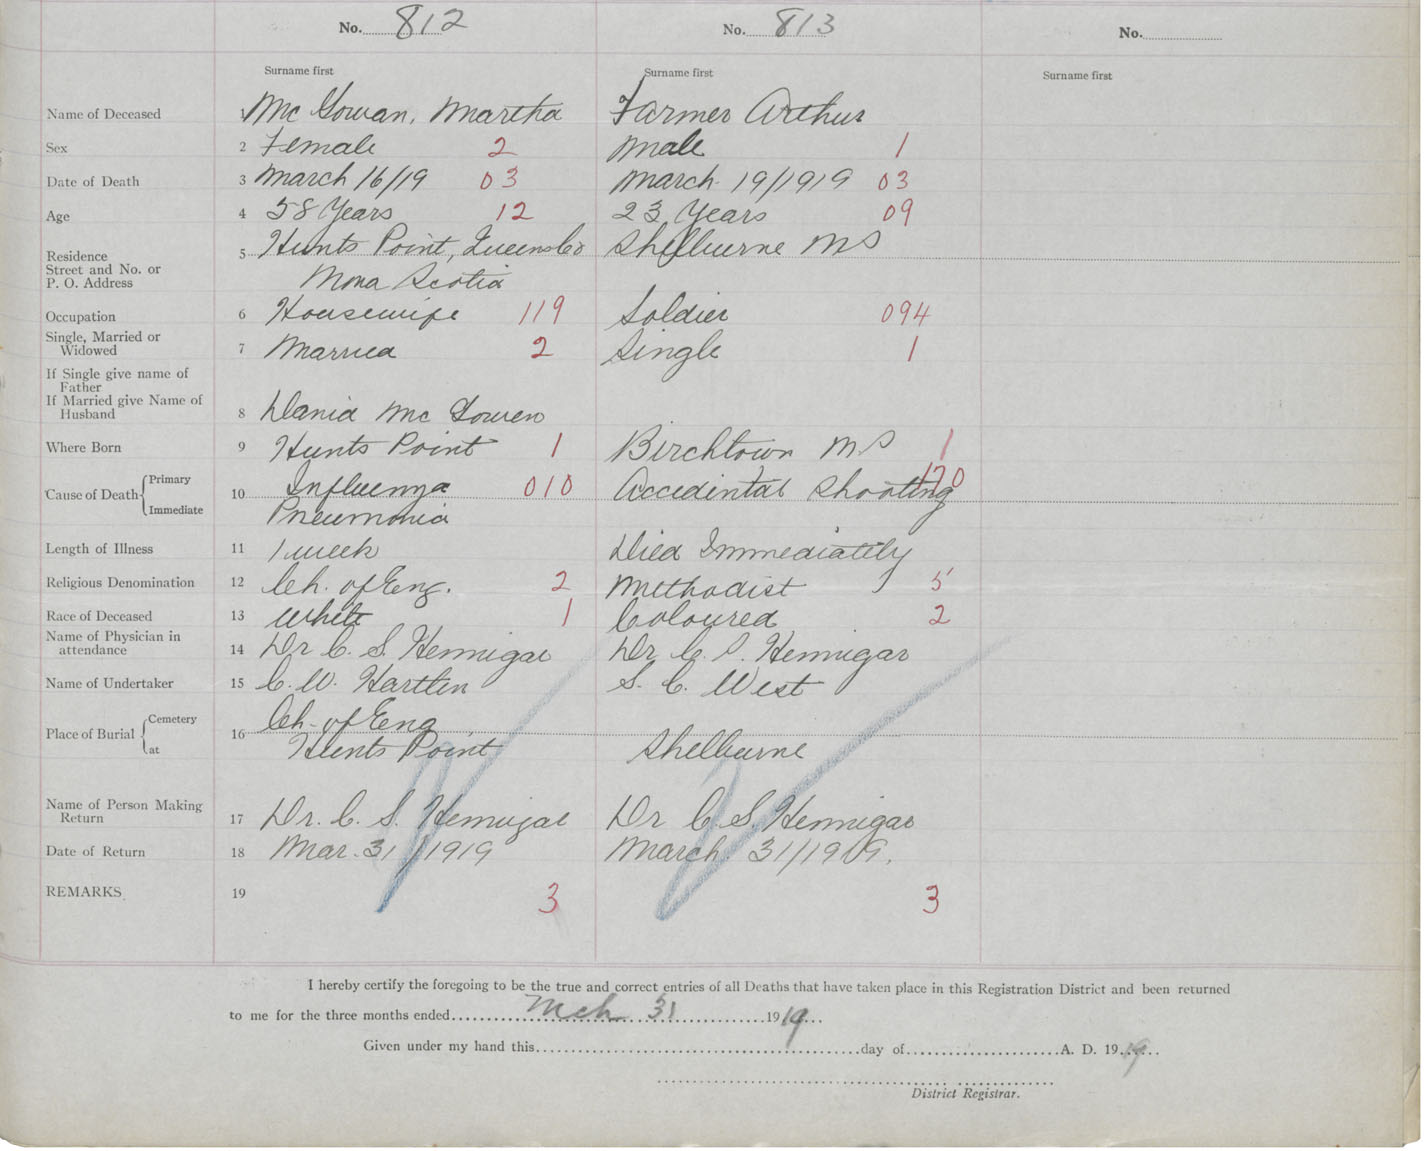 No. 812 No. 813 No.
Surname first Surname first Surname first
Name of Deceased 1 McGowan, Martha Farmer Arthur
Sex 2 Female 2 Male 1
Date of Death 3 March 16/19 03 March 19/1919 03
Age 4 58 Years 12 23 Years 09
Residence
Street and No. or
P. O. Address
5 Hunts Point, Queens Co Shelburne NS
Nova Scotia
Occupation 6 Housewife 119 Soldier 094
Single, Married or
Widowed
7 Married 2 Single 1
If Single give name of
Father
If Married give Name of
Husband
8 David McGowen
Where Born 9 Hunts Point 1 Birchtown NS 1
Cause of Death Primary
Immediate
10 Influenza 010 Accidintal Shooting 170
Pneumonia
Length of Illness 11 1 week Died Immediatily
Religious Denomination 12 Ch. of Eng. 2 Methodist 5
Race of Deceased 13 White 1 Coloured 2
Name of Physician in
attendance
14 Dr C. S. Hennigar Dr C. S. Hennigar
Name of Undertaker 15 C. W. Hartlen S. C. West
Place of Burial Cemetery
at
16 Ch. of Eng
Hunts Point Shelburne
Name of Person Making
Return
17 Dr. C. S. Hennigar Dr C. S. Hennigar
Date of Return 18 Mar. 31/1919 March 31/1919.
REMARKS 19 3 3
I hereby certify the foregoing to be the true and correct entries of all Deaths that have taken place in this Registration District and been returned
to me for the three months ended Mch 31 1919
Given under my hand this day of A. D. 1919
District Registrar.